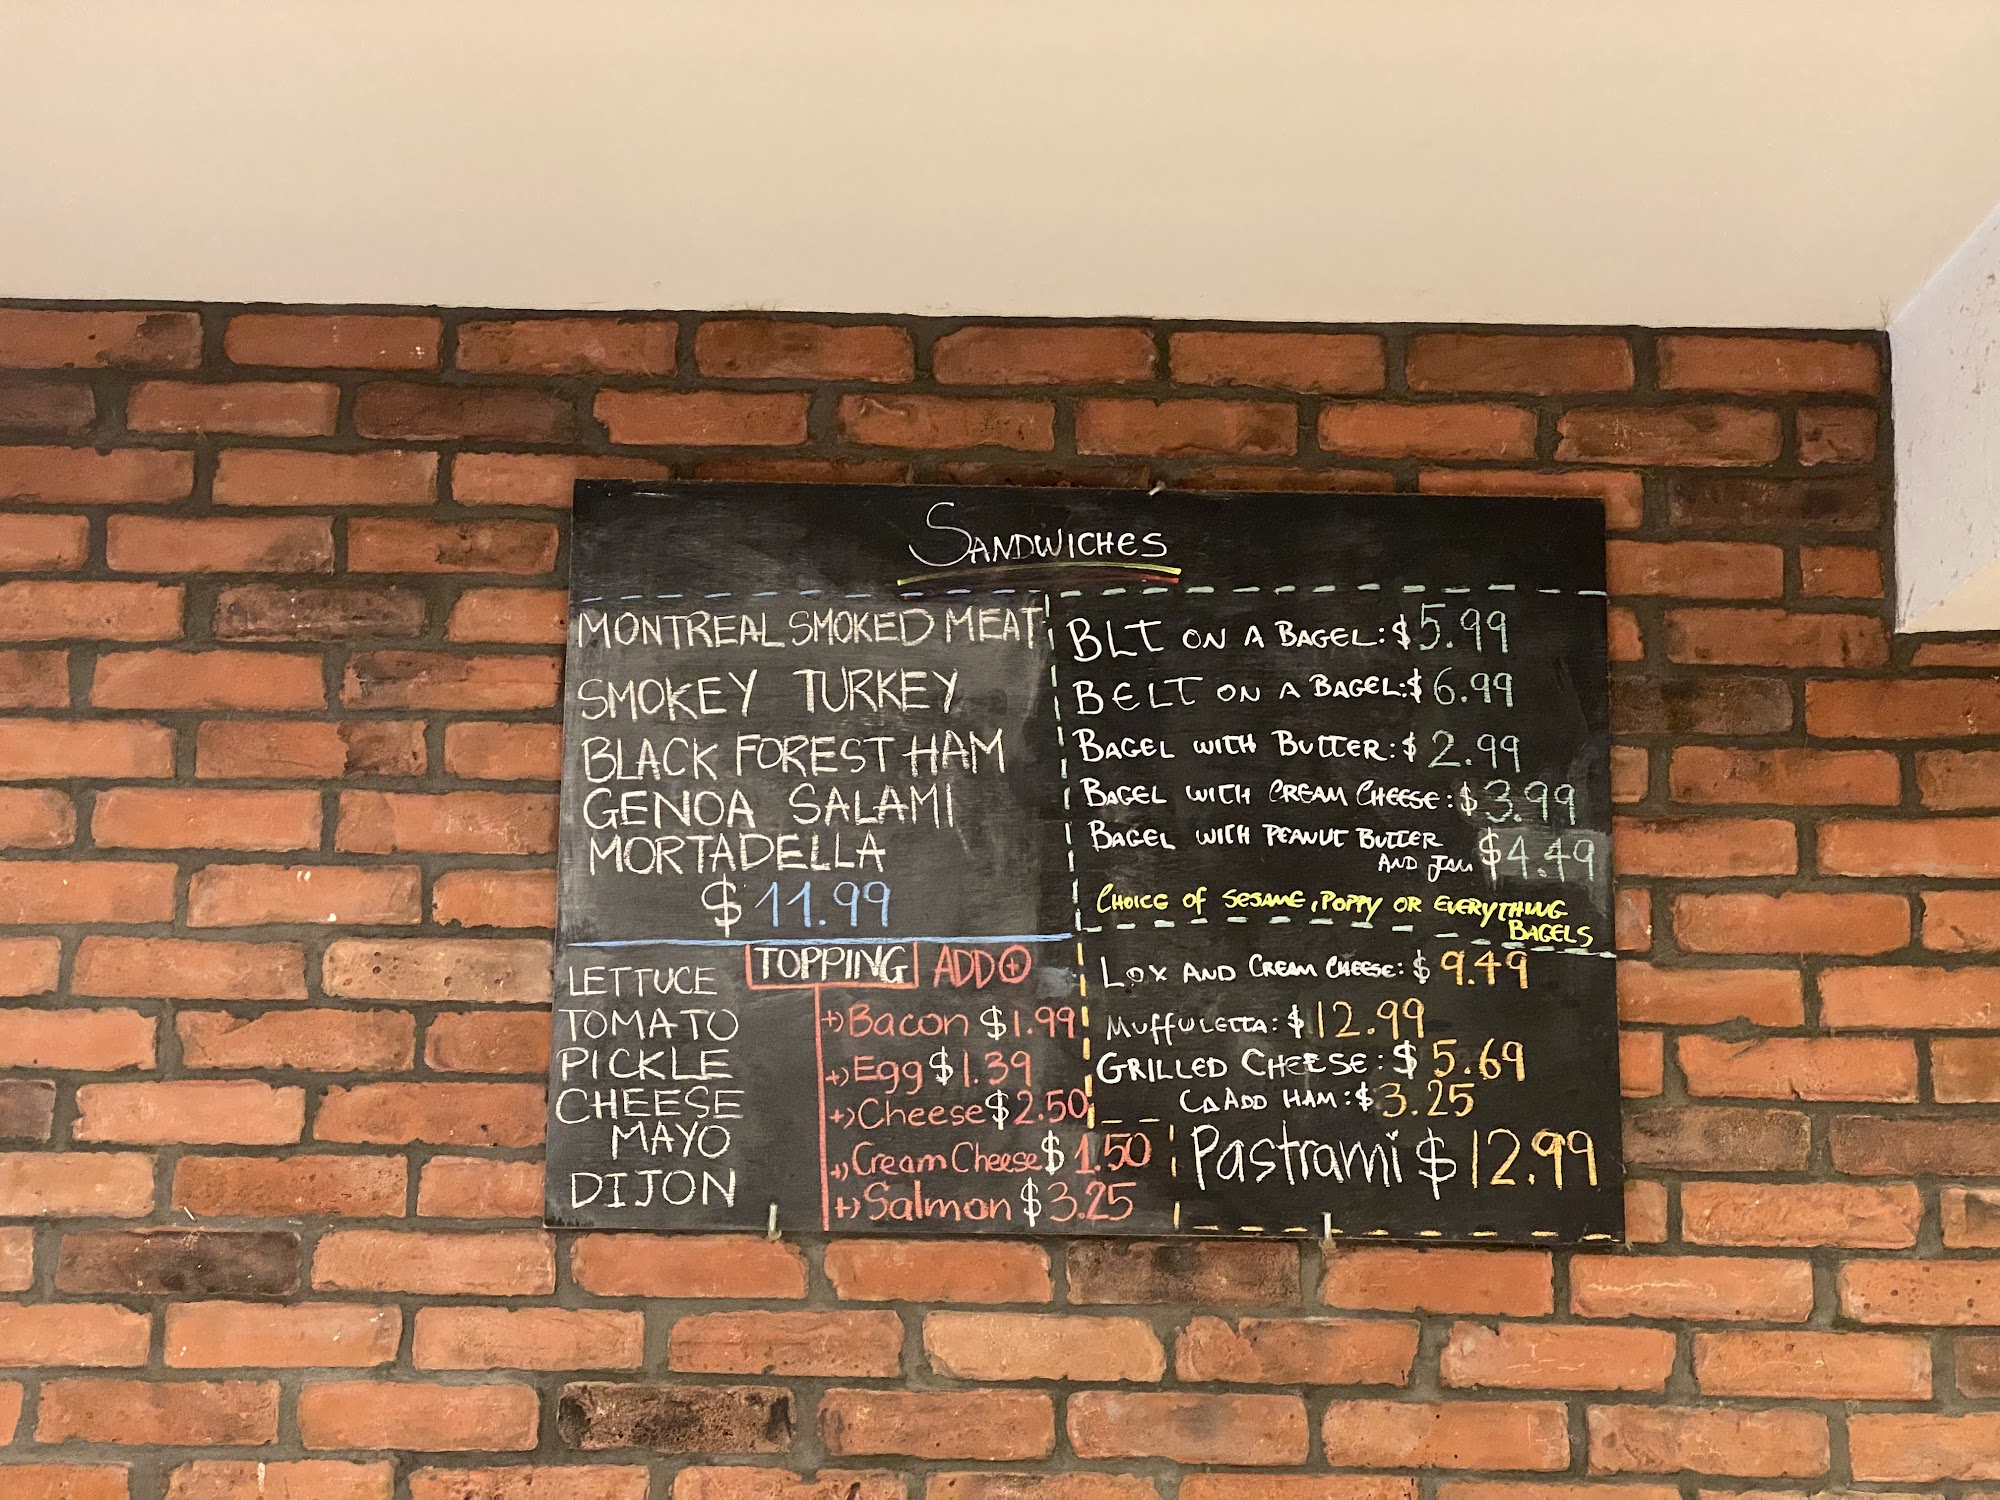 SANDWICHES
MONTREAL SMOKED MEAT
SMOKEY TURKEY
BLACK FOREST HAM
GENOA SALAMI
MORTADELLA
$11.99
LETTUCE
TOMATO
PICKLE
CHEESE
MAYO
DIJON
TOPPING ADD+
+) Bacon $1.99
+) Egg $1.39
+) Cheese $2.50
+) Cream Cheese $1.50
+) Salmon $3.25
BLT ON A BAGEL: $5.99
BELT ON A BAGEL: $6.99
BAGEL WITH BUTTER: $2.99
BAGEL WITH CREAM CHEESE: $3.99
BAGEL WITH PEANUT BUTTER
AND JAM $4.49
CHOICE OF SESAME, POPPY OR EVERYTHING
BAGELS
LOX AND CREAM CHEESE: $9.49
MUFFULETTA: $12.99
GRILLED CHEESE: $5.69
ADD HAM: $3.25
Pastrami $12.99